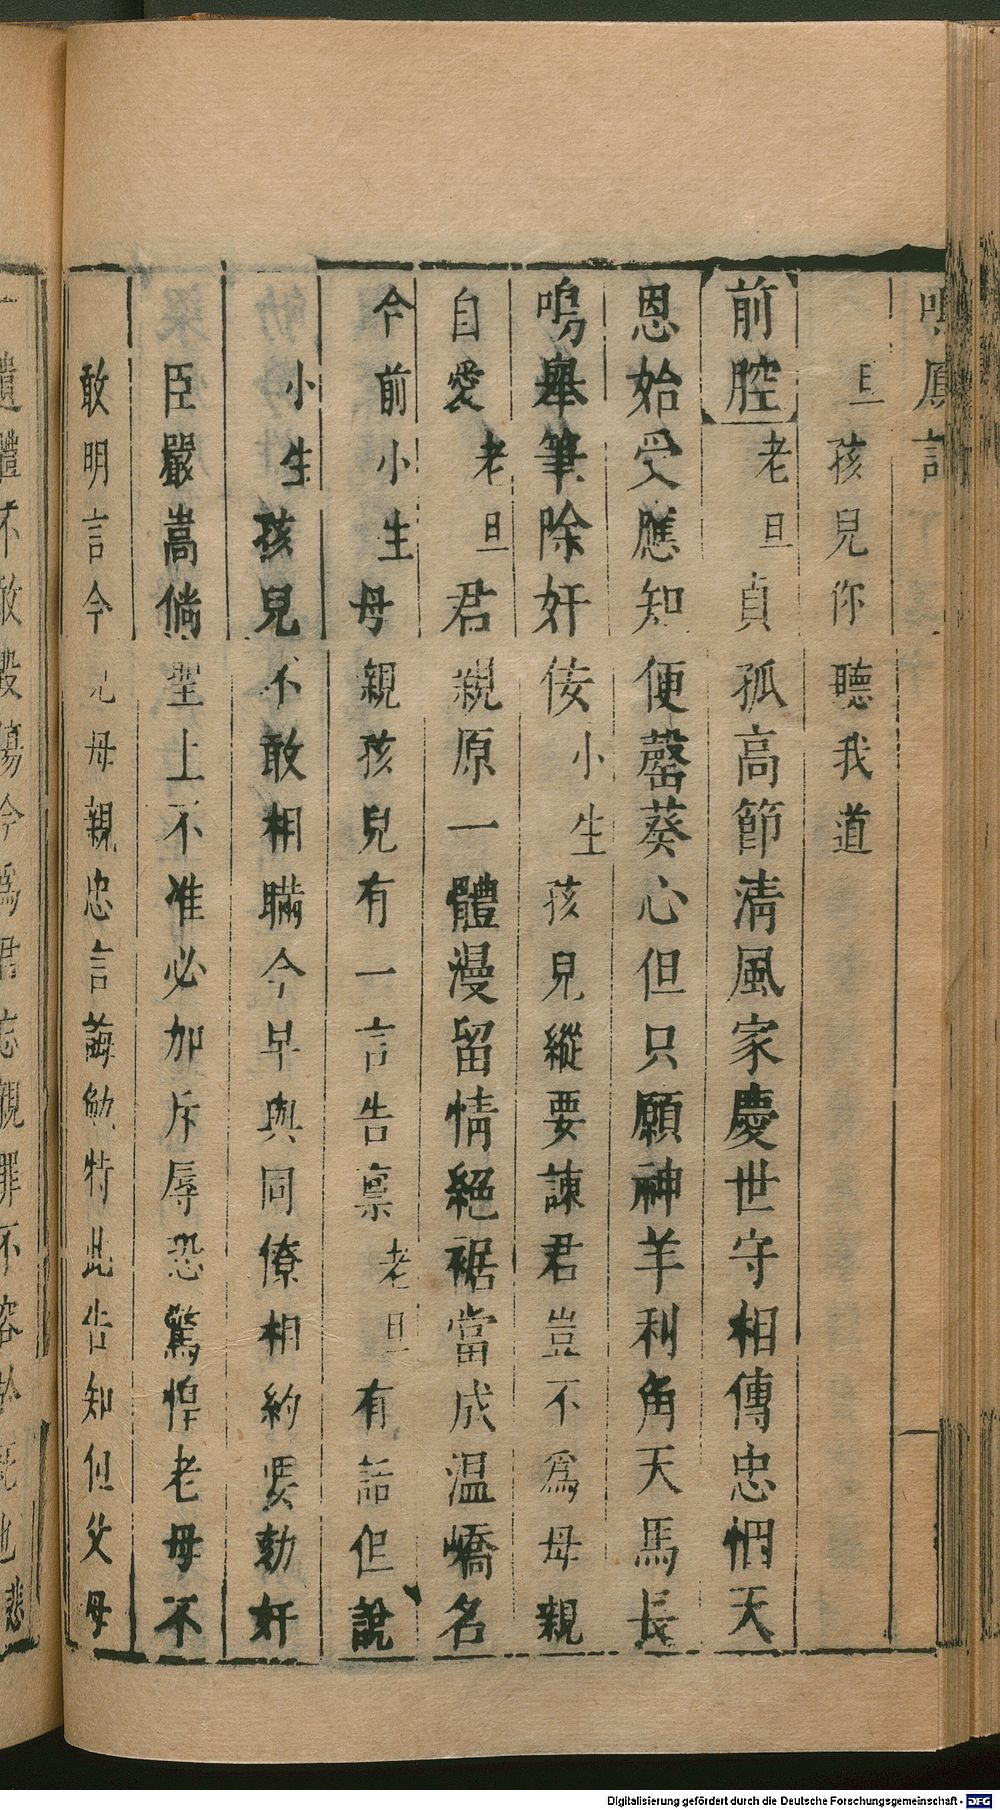 鳴鳳記
旦孩兒你聽我道
前腔老旦貞孤高節清風家慶世守相傳忠悃天
恩始受應知便罄葵心但只願神羊利角天馬長
鳴舉筆除奸佞小生孩兒縱要諫君豈不爲母親
自愛老旦君親原一體漫留情絕裾當成温嶠名
今前小生母親孩兒有一言告禀老旦有話但說
小生孩兒不敢相瞞今早與同僚相約要劾奸
臣嚴嵩倘聖上不准必加斥辱恐驚惶老母不
敢明言今元母親忠言誨勉特此告知但父母
遺體不敢毀傷今爲君忘親罪不容於死也悲
Digitalisierung gefördert durch die Deutsche Forschungsgemeinschaft - DFG